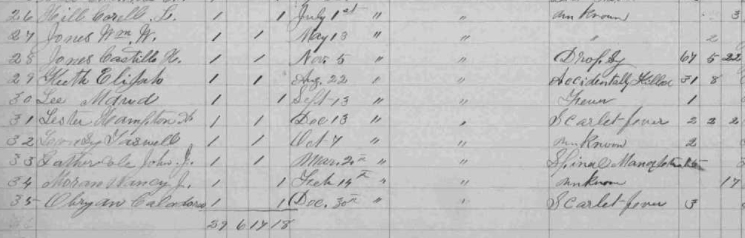 26 Hill Corell L. 1 1 July 1st " " unknown 3
27 Jones Wm. W. 1 1 May 13 " " " 2
28 Jones Castillo H. 1 1 Nov 5 " " Dropsy 67 5 22
29 Keith Elijah 1 1 Aug. 22 " " Accidentally Killed 31 8
30 Lee Maud 1 1 Sept 13 " " Fever 1
31 Lester Hampton 1 1 Dec 13 " " Scarlet fever 2 2 2
32 1 1 Oct 7 " " unknown 2
33 John J. 1 1 " " Spinal
34 Moran Nancy J. 1 1 Feb 14th " " unknown 17
35 Obryan 1 1 Dec. 30th " " Scarlet fever 3
29 6 17 18